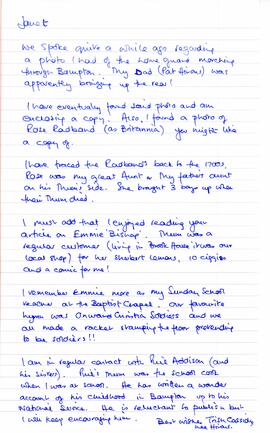 Janet
We spoke quite a while ago regarding
a photo I had of the home guard marching
through Bampton. My Dad (Pat Hinas) was
apparently bringing up the rear!
I have eventually found said photo and am
enclosing a copy. Also, I found a photo of
Rose Radband (as Britannia) you might like
a copy of.
I have traced the Radbands back to the 1700s,
Rose was my great Aunt & my fathers aunt
on his Mum's side. She brought 3 boys up when
their Mum died.
I must add that I enjoyed reading your
article on Emmie Bishop. Mum was a
regular customer (living in Brook House it was our
local shop) for her sherbert lemons, 10 ciggies
and a comic for me!
I remember Emmie more as my Sunday School
teacher at the Baptist Chapel. Our favourite
hymn was Onward Christian Soldiers and we
all made a racket stamping the floor pretending
to be soldiers!!
I am in regular contact with Addison (and
his sister). Mum was the school cook
when I was at school. He has written a wonder
account of his childhood in Bampton up to his
National Service. He is reluctant to publish but
I will keep encouraging him.
Best wishes Trish Cassidy